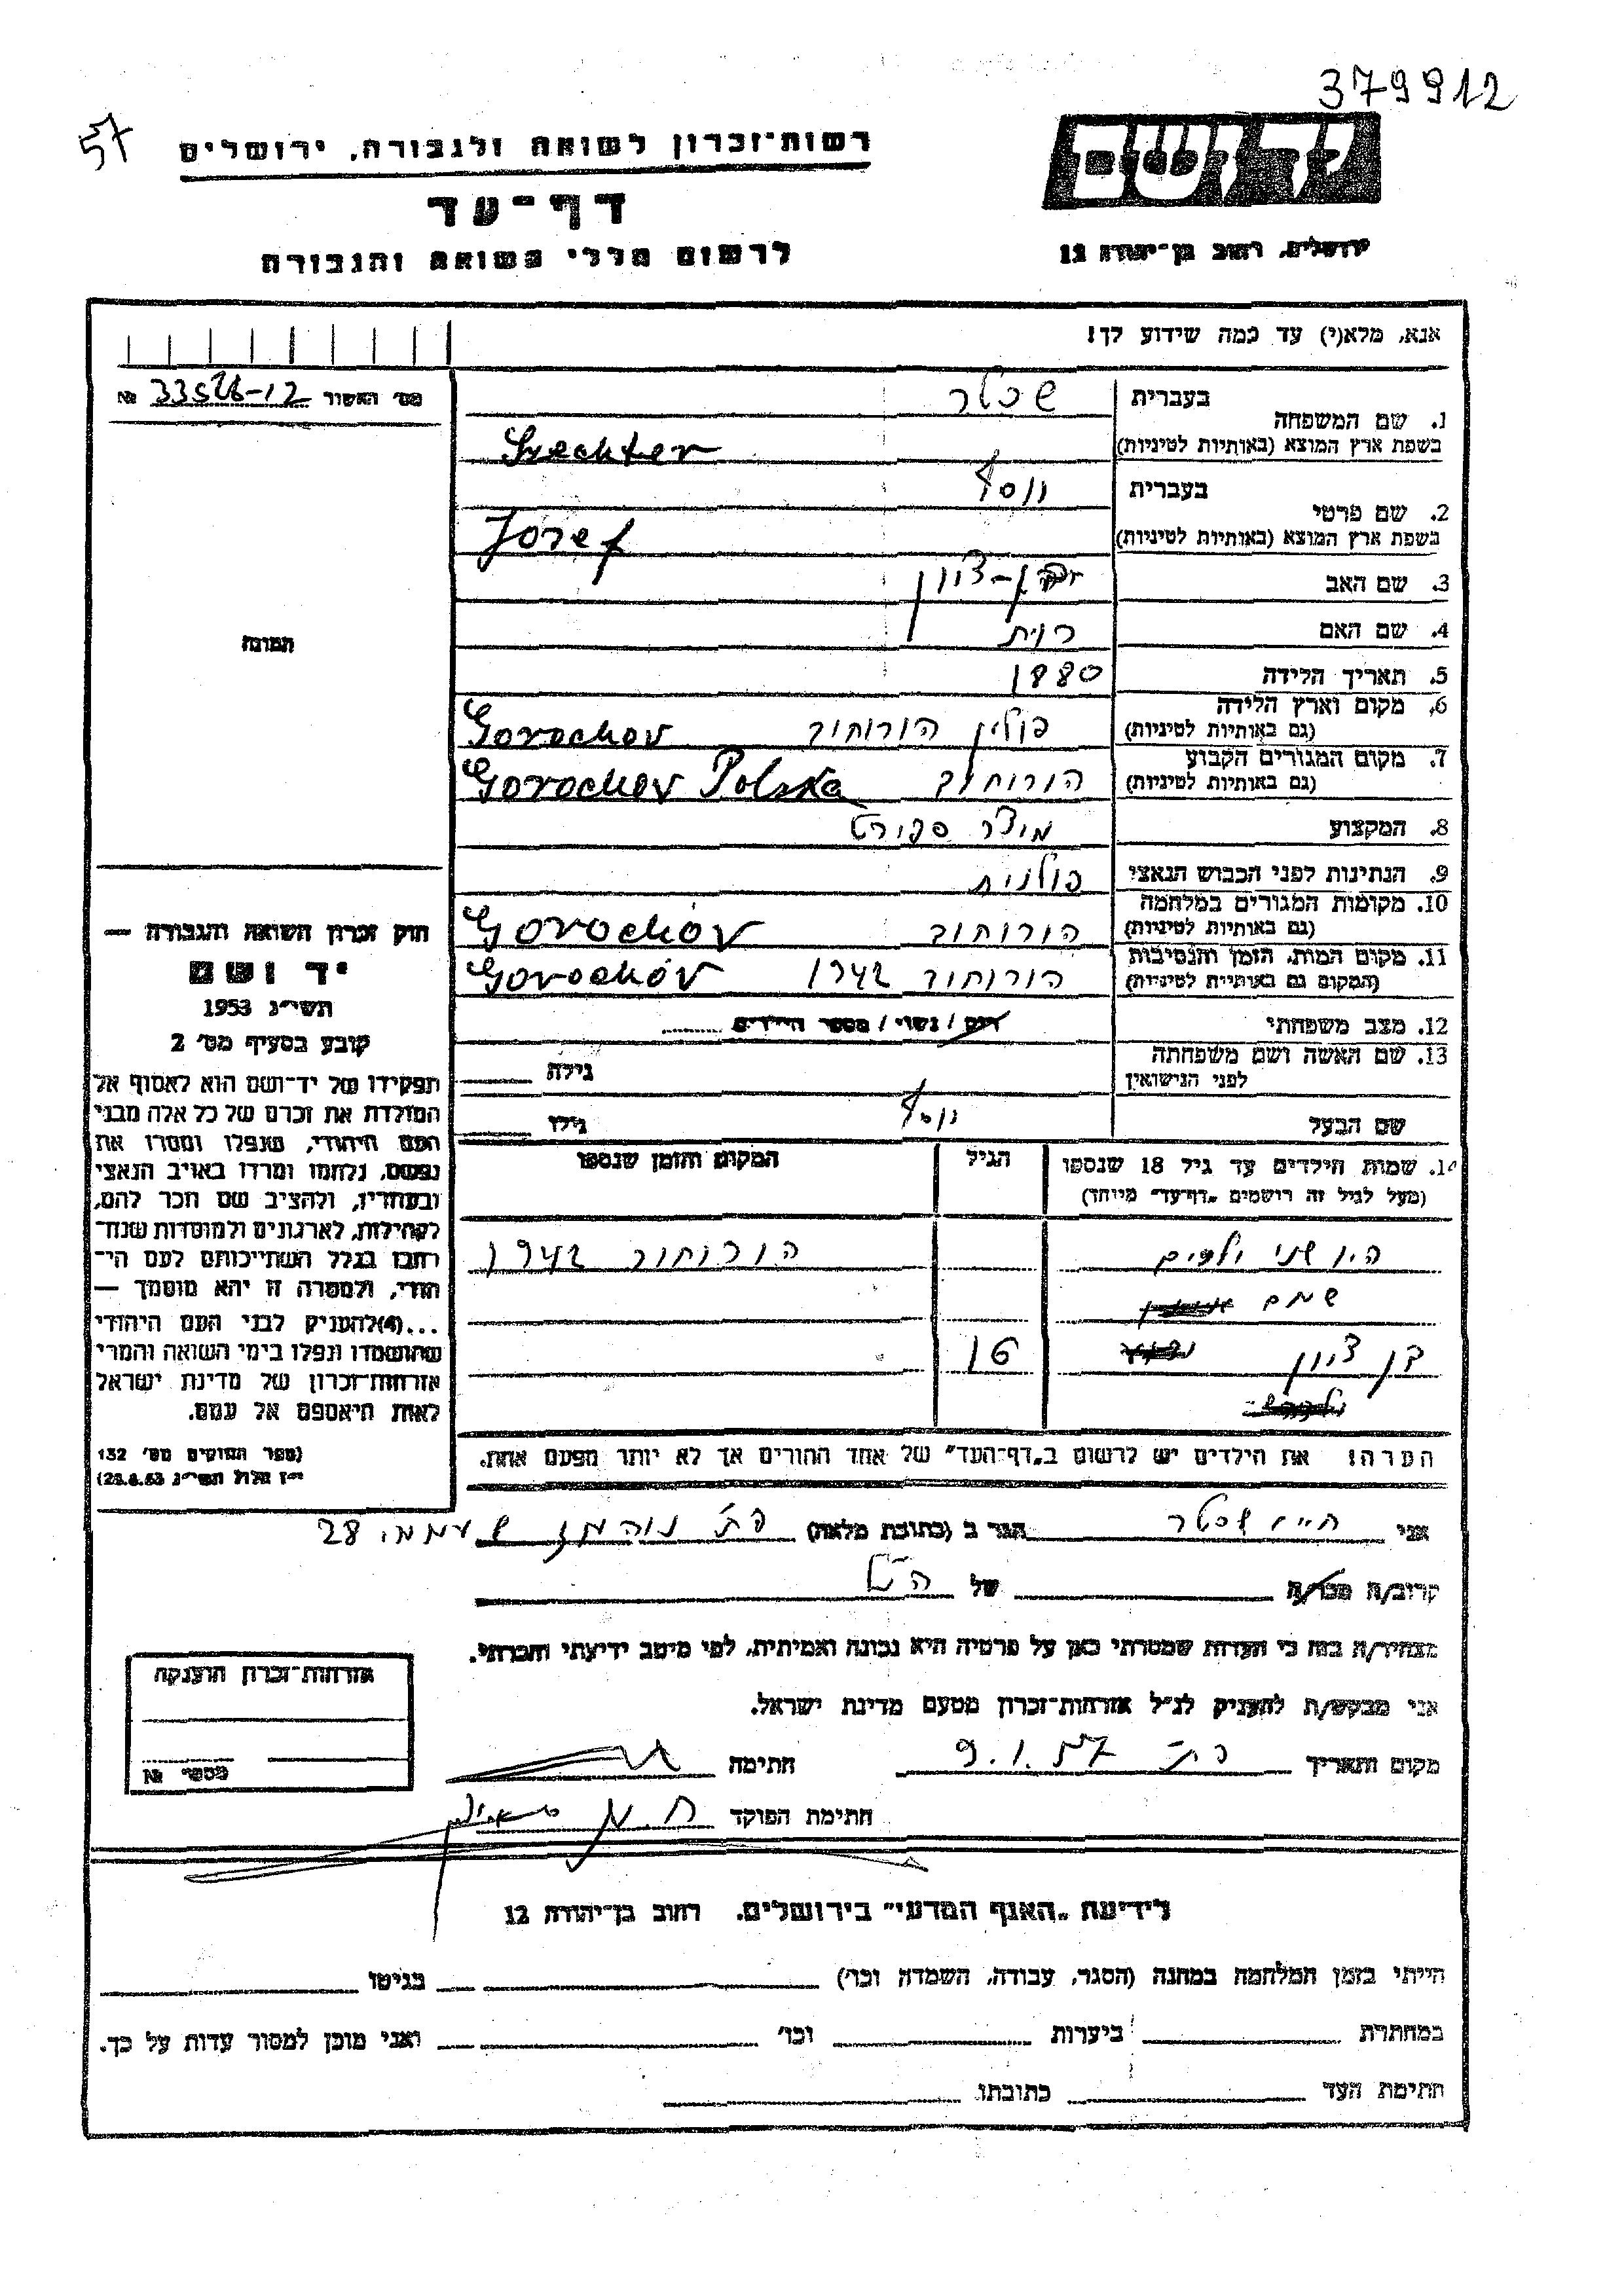 379912
57
יד ושם
ירושלים, רחוב בן־יהודה 12
רשות־זכרון לשואה ולגבורה, ירושלים
דף־עד
לרשום חללי השואה והגבורה
אנא, מלא(י) עד כמה שידוע לך!
מס׳ האשור № 33528-12
1. שם המשפחה בעברית שכטר
בשפת ארץ המוצא (באותיות לטיניות) Szechter
2. שם פרטי בעברית יוסף
בשפת ארץ המוצא (באותיות לטיניות) Jozef
3. שם האב בן-ציון
4. שם האם
5. תאריך הלידה 1880
6. מקום וארץ הלידה (גם באותיות לטיניות) פולין הורוחוב Gorochov
7. מקום המגורים הקבוע (גם באותיות לטיניות) הורוחוב Gorochov Polska
8. המקצוע
9. הנתינות לפני הכבוש הנאצי פולנית
10. מקומות המגורים במלחמה (גם באותיות לטיניות) הורוחוב Gorochóv
11. מקום המות, הזמן והנסיבות (המקום גם באותיות לטיניות) הורוחוב 1942 Gorochóv
12. מצב משפחתי רווק / נשוי / מספר הילדים
13. שם האשה ושם משפחתה לפני הנישואין גילה
שם הבעל יוסף גילו
14. שמות הילדים עד גיל 18 שנספו (מעל לגיל זה רושמים „דף־עד״ מיוחד) הגיל המקום והזמן שנספו
היו שני ילדים הורוחוב 1942
שמם
בן ציון 16
הערה! את הילדים יש לרשום ב„דף־העד״ של אחד ההורים אך לא יותר מפעם אחת.
התמונה
חוק זכרון השואה והגבורה —
יד ושם
תשי״ג 1953
קובע בסעיף מס׳ 2
תפקידו של יד־ושם הוא לאסוף אל
המולדת את זכרם של כל אלה מבני
העם היהודי, שנפלו ומסרו את
נפשם, נלחמו ומרדו באויב הנאצי
ובעוזריו, ולהציב שם וזכר להם,
לקהילות, לארגונים ולמוסדות שנח־
רבו בגלל השתייכותם לעם הי־
הודי, ולמטרה זו יהא מוסמך —
...(4)להעניק לבני העם היהודי
שהושמדו ונפלו בימי השואה והמרי
אזרחות־זכרון של מדינת ישראל
לאות היאספם אל עמם.
(ספר החוקים מס׳ 132
י״ז אלול תשי״ג 28.8.53)
אני חיים שכטר הגר ב (כתובת מלאה) 28
קרוב/ה מכר/ה של הנ״ל
מצהיר/ה בזה כי העדות שמסרתי כאן על פרטיה היא נכונה ואמיתית, לפי מיטב ידיעתי והכרתי.
אני מבקש/ת להעניק לנ״ל אזרחות־זכרון מטעם מדינת ישראל.
מקום ותאריך 9.1.57 חתימה
חתימת הפוקד
אזרחות־זכרון הוענקה
מספר №
לידיעת „האגף המדעי״ בירושלים, רחוב בן־יהודה 12
הייתי בזמן המלחמה במחנה (הסגר, עבודה, השמדה וכו׳) בגיטו
במחתרת ביערות וכו׳ ואני מוכן למסור עדות על כך.
חתימת העד כתובתו